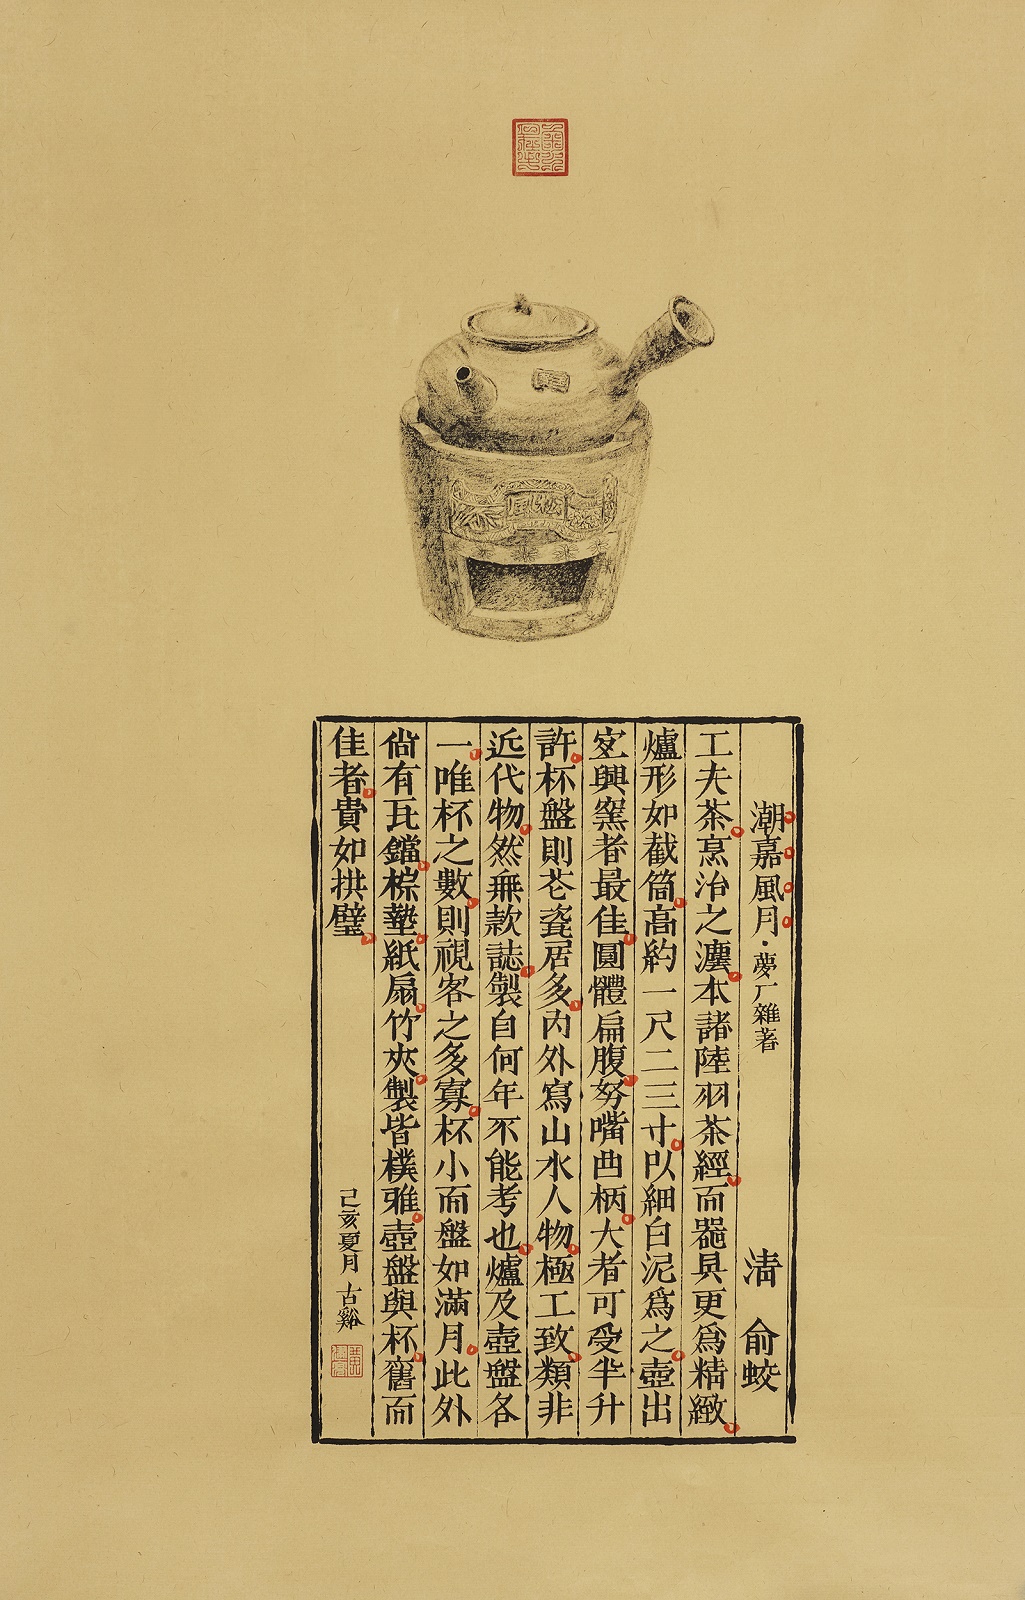 松風
潮嘉風月·夢厂雜著 清 俞蛟
工夫茶烹治之灋本諸陸羽茶經而器具更爲精緻
爐形如截筒高約一尺二三寸以細白泥爲之壺出
宜興窯者最佳圓體扁腹努嘴曲柄大者可受半升
許杯盤則花瓷居多内外寫山水人物極工致類非
近代物然無款誌製自何年不能考也爐及壺盤各
一唯杯之數則視客之多寡杯小而盤如滿月此外
尚有瓦鐺棕墊紙扇竹夾製皆樸雅壺盤與杯舊而
佳者貴如拱璧
己亥夏月 古谿